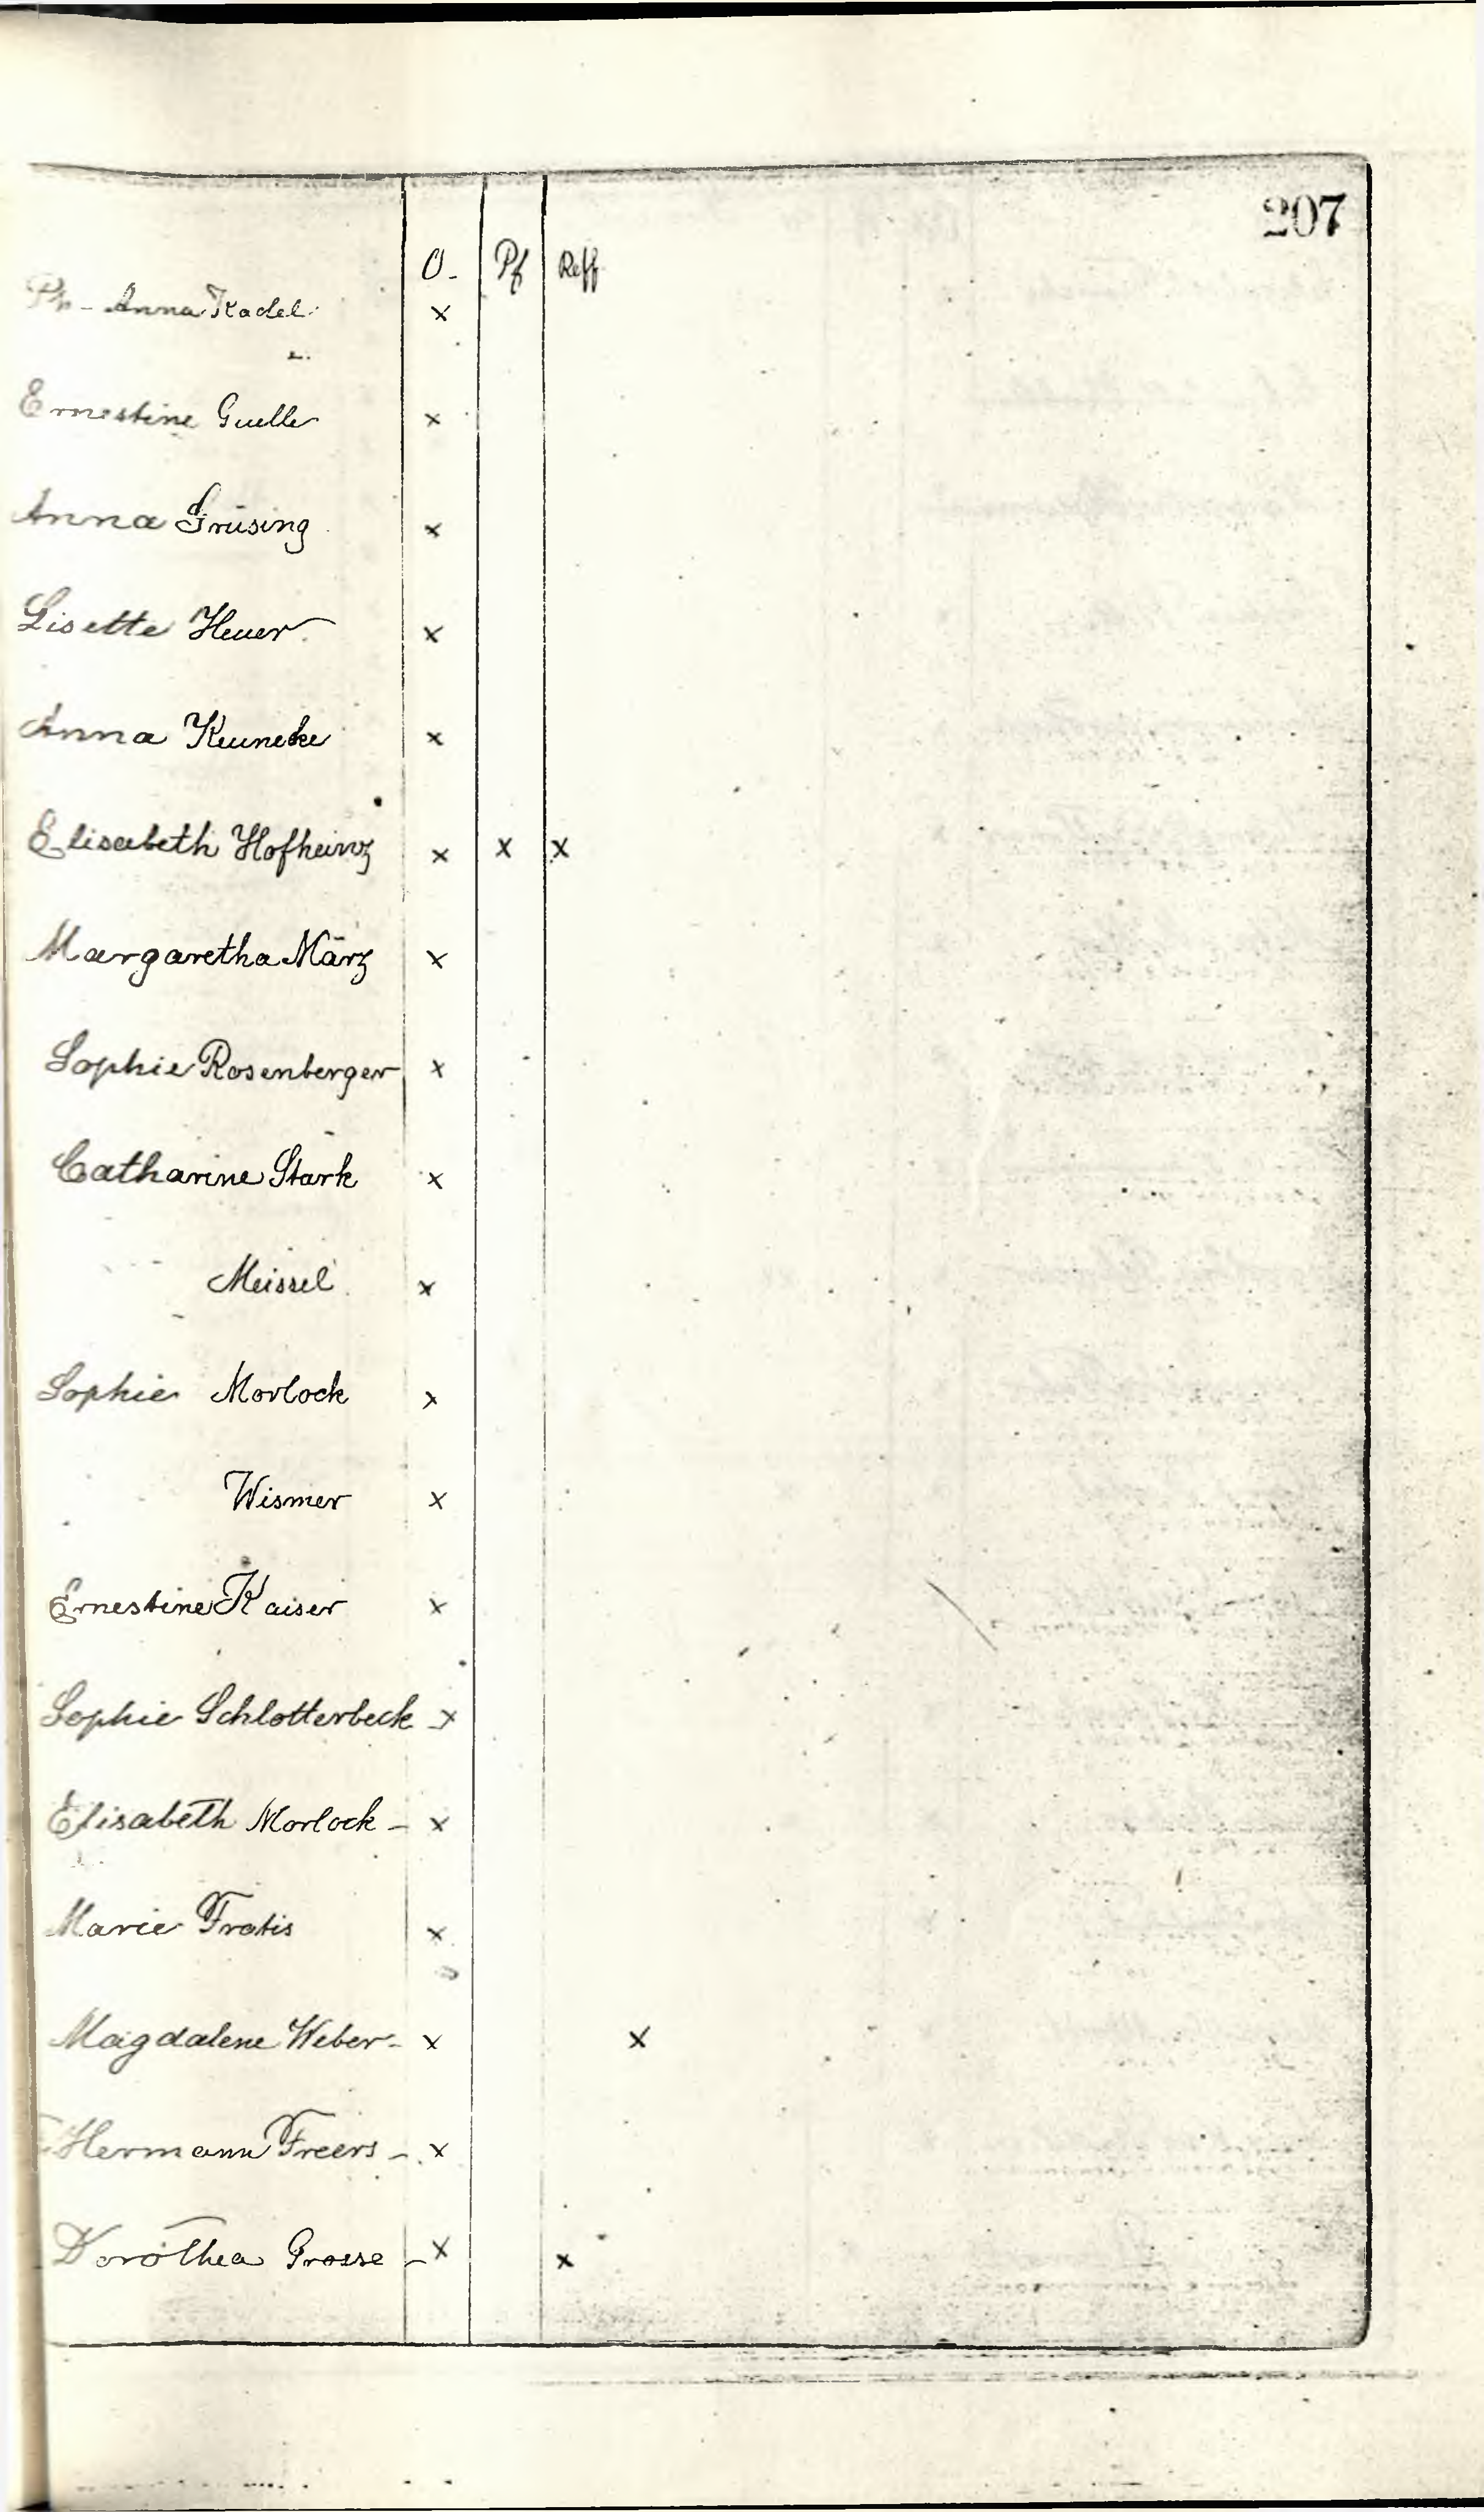 207
O- Pf Reff
Ph - Anna Kadel x
Ernestine Guelle x
Anna Grüsing x
Lisette Heuer x
Anna Keuneke x
Elisabeth Hofheinz x x x
Margaretha März x
Sophie Rosenberger x
Catharine Stark x
Meissel x
Sophie Morlock x
Wismer x
Ernestine Kaiser x
Sophie Schlotterbeck x
Elisabeth Morlock - x
Marie Fratis x
Magdalene Weber - x x
Hermann Freers - x
Dorothea Grosse - x x